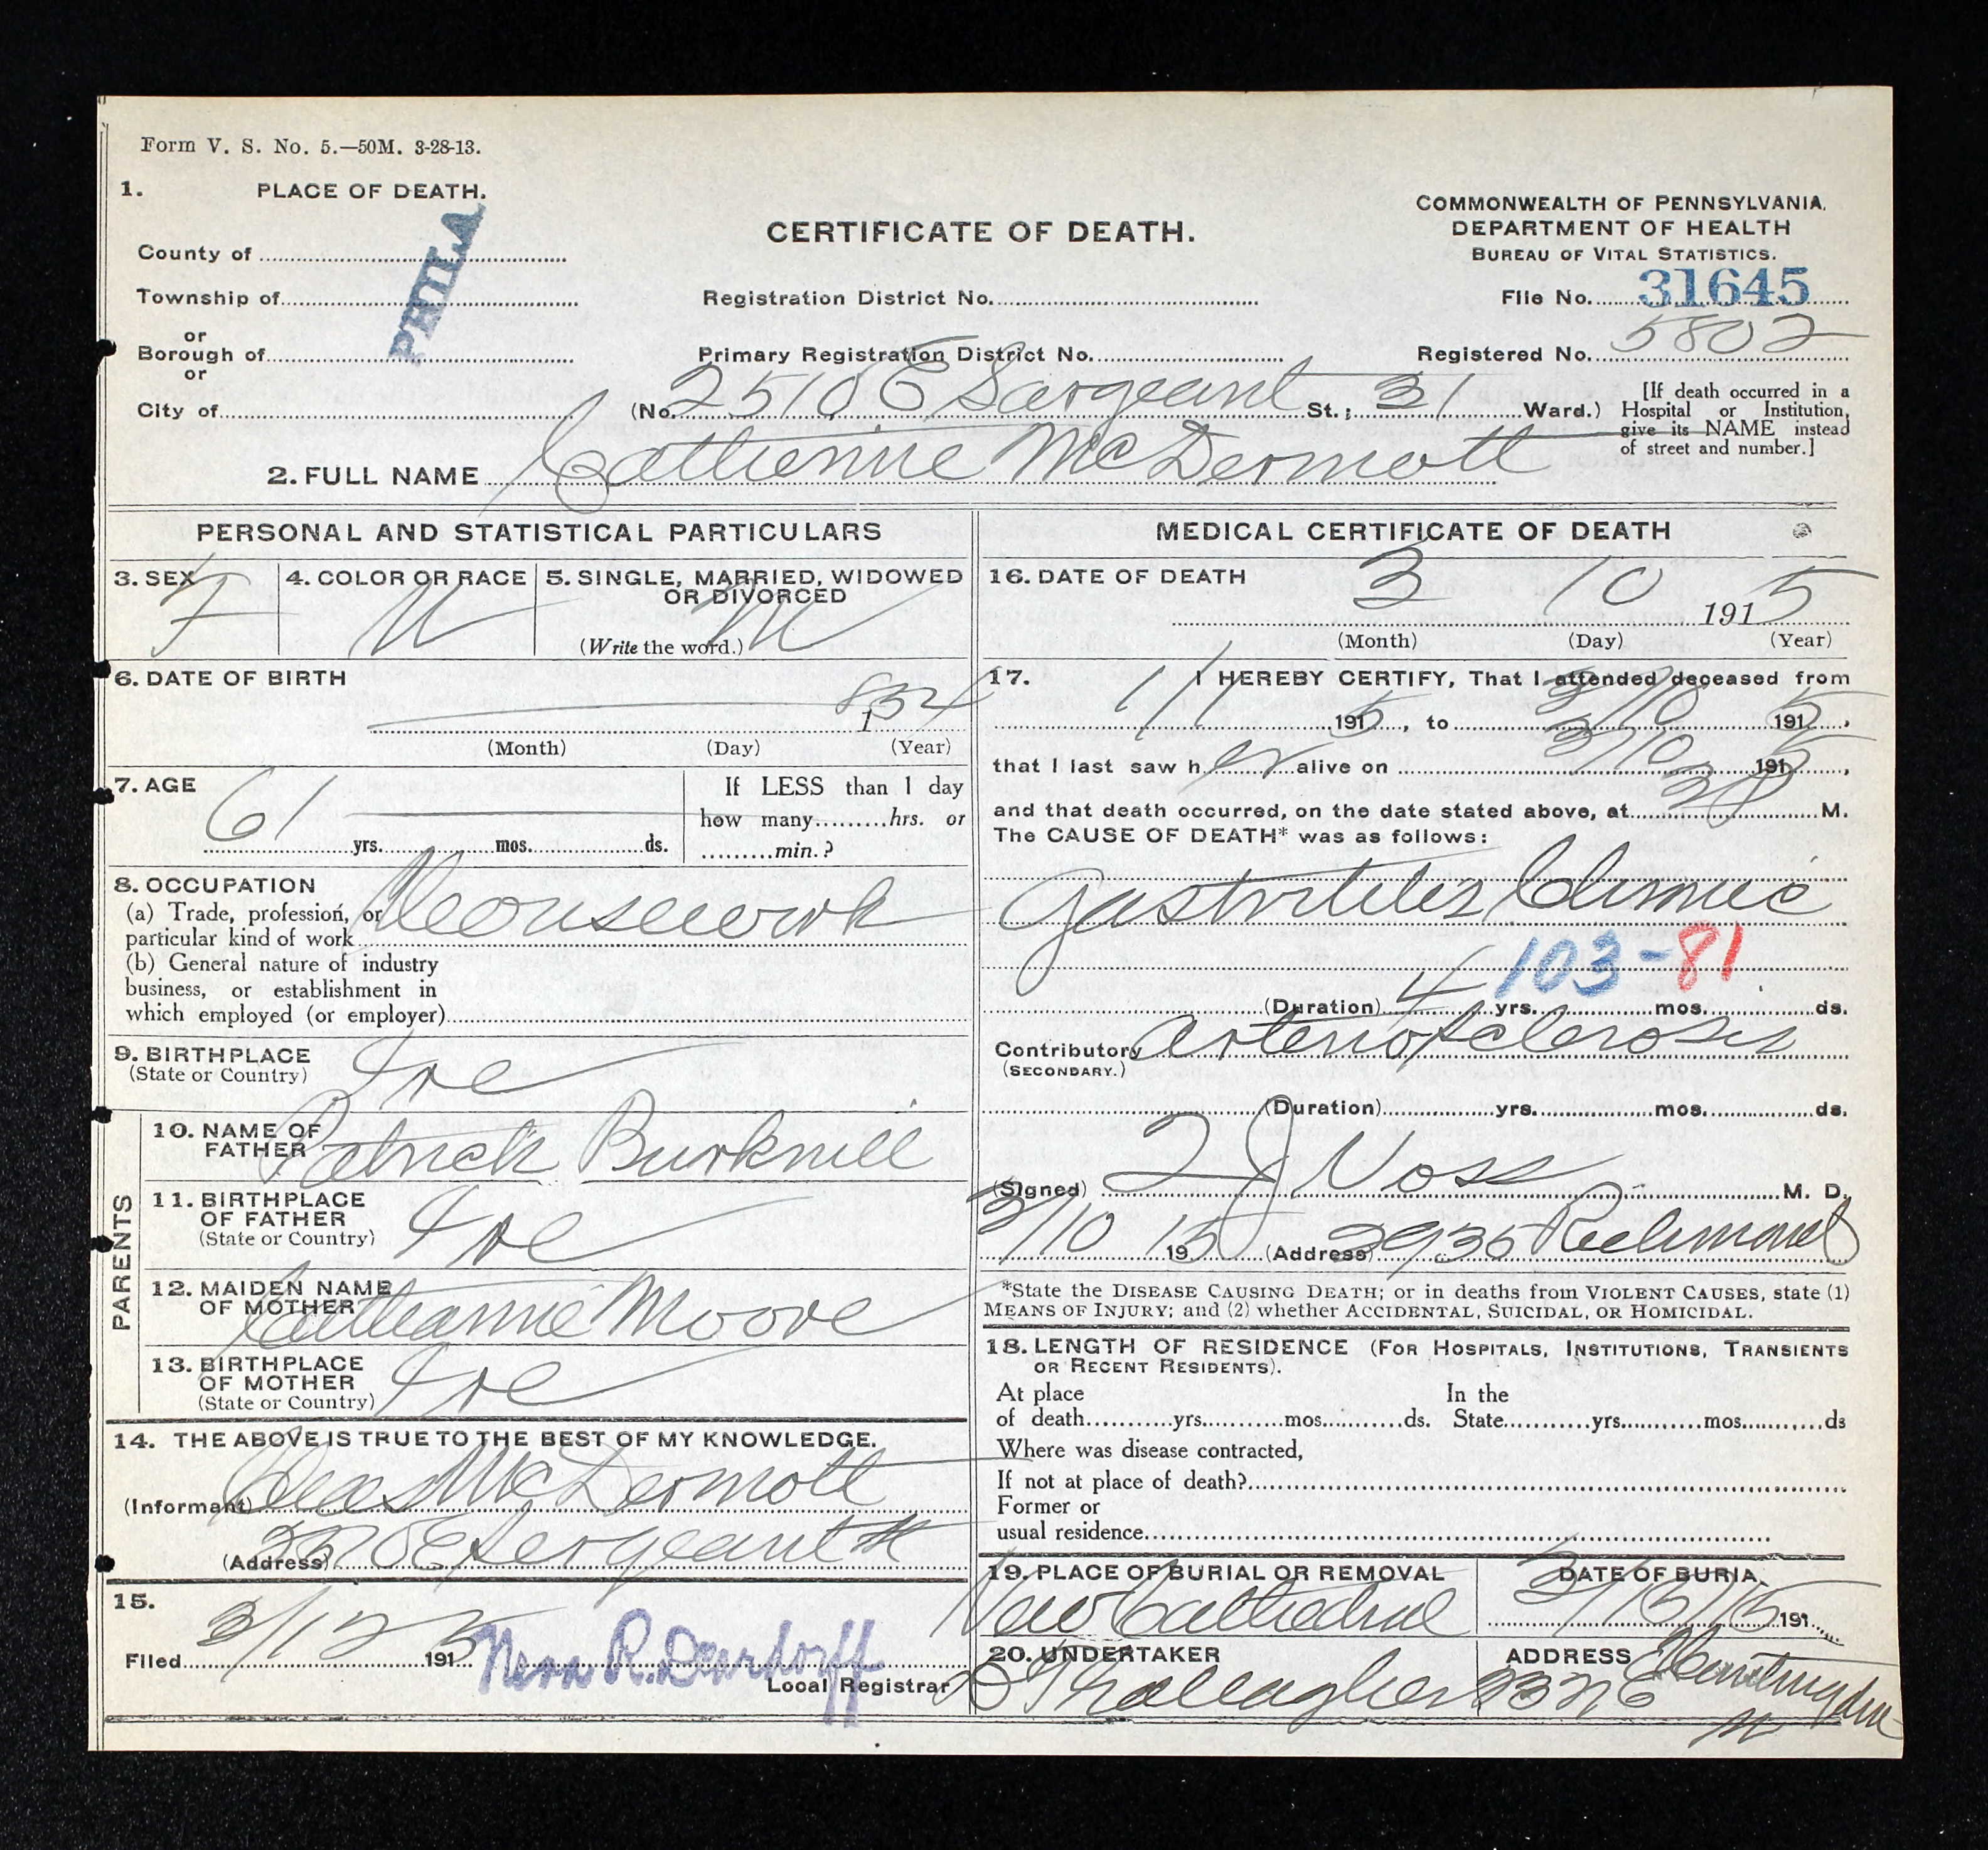 Form V. S. No. 5.—50M. 3-28-13.
1. PLACE OF DEATH.
COMMONWEALTH OF PENNSYLVANIA.
DEPARTMENT OF HEALTH
BUREAU OF VITAL STATISTICS.
CERTIFICATE OF DEATH.
PHILA
County of
Township of
or
Borough of
or
City of
Registration District No.
File No. 31645
Primary Registration District No.
Registered No. 5802
(No. 2510 E Sargeant St.; 31 Ward.)
[If death occurred in a
Hospital or Institution,
give its NAME instead
of street and number.]
2. FULL NAME Catherine McDermott
PERSONAL AND STATISTICAL PARTICULARS
3. SEX F
4. COLOR OR RACE W
5. SINGLE, MARRIED, WIDOWED
OR DIVORCED
(Write the word.)
6. DATE OF BIRTH
1854
(Month) (Day) (Year)
7. AGE
61 yrs. mos. ds.
If LESS than 1 day
how many hrs. or
min.?
8. OCCUPATION
(a) Trade, profession, or
particular kind of work Housework
(b) General nature of industry
business, or establishment in
which employed (or employer)
9. BIRTHPLACE
(State or Country) Ire
PARENTS
10. NAME OF
FATHER Patrick
11. BIRTHPLACE
OF FATHER
(State or Country) Ire
12. MAIDEN NAME
OF MOTHER Moore
13. BIRTHPLACE
OF MOTHER
(State or Country) Ire
14. THE ABOVE IS TRUE TO THE BEST OF MY KNOWLEDGE.
(Informant) McDermott
(Address) E Sergeant St
15.
Filed 3/12 1915
Neva R. Deardorff
Local Registrar
MEDICAL CERTIFICATE OF DEATH
16. DATE OF DEATH
3 10 1915
(Month) (Day) (Year)
17. I HEREBY CERTIFY, That I attended deceased from
1/1 1915, to 3/10 1915,
that I last saw her alive on 3/10 1915,
and that death occurred, on the date stated above, at M.
The CAUSE OF DEATH* was as follows:
Gastritis Chronic
103-81
(Duration) 4 yrs. mos. ds.
Contributory Arteriosclerosis
(SECONDARY.)
(Duration) yrs. mos. ds.
(Signed) J Voss M. D.
3/10 1915 (Address) 2936 Richmond
*State the DISEASE CAUSING DEATH; or in deaths from VIOLENT CAUSES, state (1)
MEANS OF INJURY; and (2) whether ACCIDENTAL, SUICIDAL, OR HOMICIDAL.
18. LENGTH OF RESIDENCE (FOR HOSPITALS, INSTITUTIONS, TRANSIENTS
OR RECENT RESIDENTS).
At place In the
of death yrs. mos. ds. State yrs. mos. ds
Where was disease contracted,
If not at place of death?
Former or
usual residence
19. PLACE OF BURIAL OR REMOVAL
New Cathedral
DATE OF BURIA.
3/15/15 191
20. UNDERTAKER
Gallagher
ADDRESS
E Huntingdon